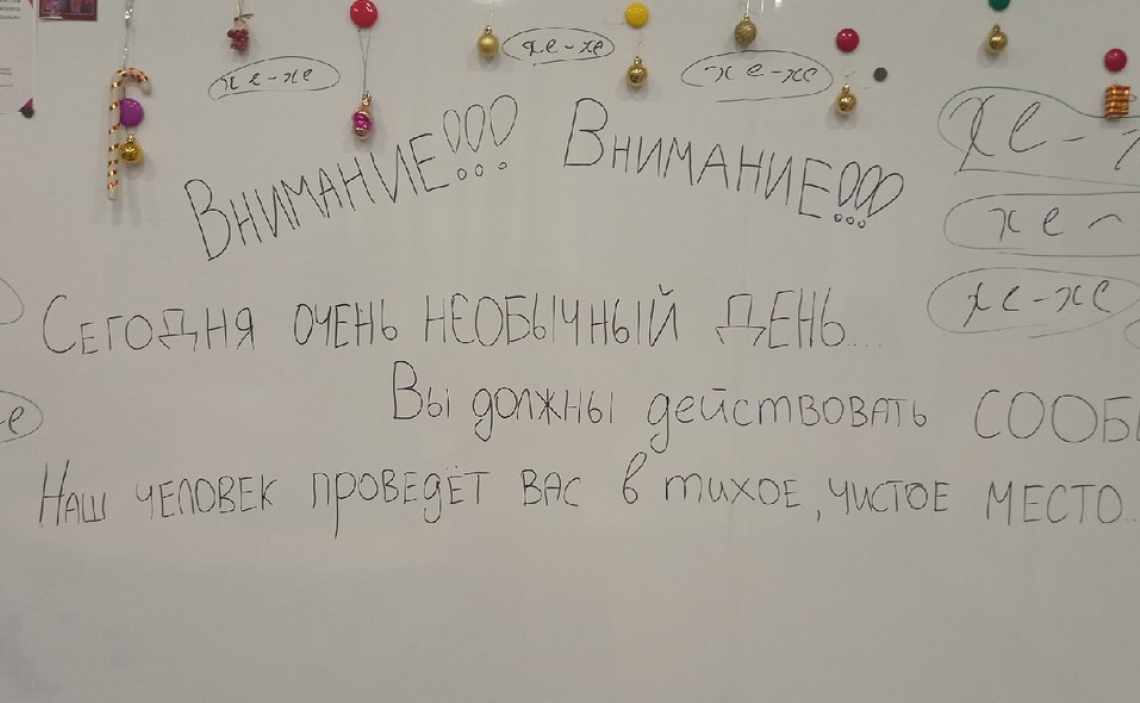 хе-хе
хе-хе
хе-хе
Внимание!!! Внимание!!!
хе-
хе-
хе-хе
Сегодня очень необычный день....
Вы должны действовать СООБ
е
Наш человек проведёт вас в тихое, чистое место...